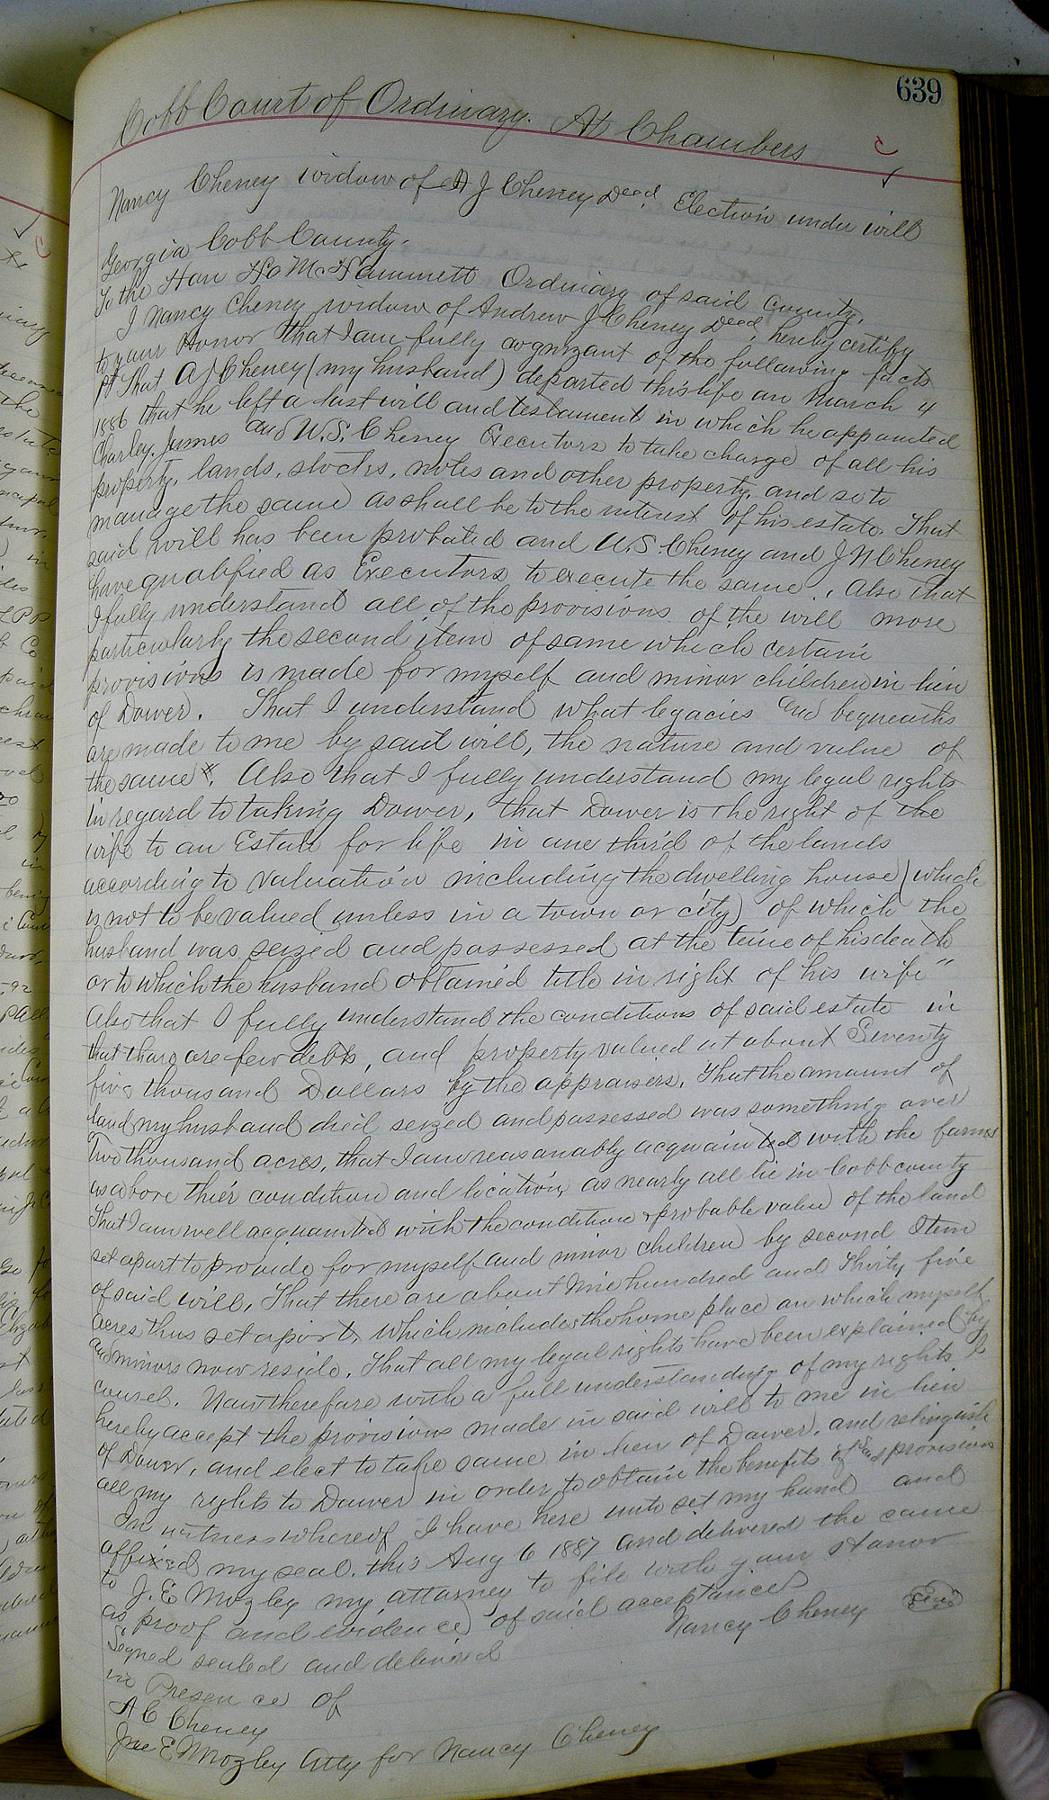 639
Cobb Court of Ordinary. At Chambers
Nancy Cheney widow of A J Cheney Decd. Election under will
Georgia Cobb County.
To the Hon McHammett Ordinary of said County.
I Nancy Cheney widow of Andrew J Cheney Decd, hereby certify
to your Honor that I am fully cognizant of the following facts
That A J Cheney (my husband) departed this life on March 4
1886 that he left a last will and testament in which he appointed
Charley, James and W.S. Cheney Executors to take charge of all his
property, lands, stocks, notes and other property, and so to
manage the same as shall be to the interest of his estate. That
said will has been probated and W.S Cheney and J N Cheney
have qualified as Executors to execute the same. Also that
I fully understand all of the provisions of the will more
particularly the second item of same which certain
provisions is made for myself and minor children in lieu
of Dower. That I understand what legacies and bequeaths
are made to me by said will, the nature and value of
the same. Also that I fully understand my legal rights
in regard to taking Dower, that Dower is the right of the
wife to an Estate for life in one third of the lands
according to valuation including the dwelling house (which
is not to be valued unless in a town or city) of which the
husband was seized and possessed at the time of his death
or to which the husband obtained title in right of his wife"
Also that I fully understand the conditions of said estate in
that thare are few debts, and property valued at about Seventy
five thousand Dollars by the appraisers. That the amount of
land my husband died seized and possessed was something over
Two thousand acres, that I am reasonably acquainted with the farms
as above thier condition and location as nearly all lie in Cobb county
That I am well acquainted with the condition & probable value of the land
set apart to provide for myself and minor children by second Item
of said will, That there are about Nine hundred and Thirty five
acres thus set apart, which includes the home place on which myself
and minors now reside. That all my legal rights have been explained by
counsel. Now therefore with a full understanding of my rights I
hereby accept the provisions made in said will to me in lieu
of Dower, and elect to take same in lieu of Dower, and relinquish
all my rights to Dower in order to obtain the benefits of said provisions
In witness whereof I have here unto set my hand and
affixed my seal. this Aug 6 1887 and delivered the same
to J. E Mozley my attorney to file with your Honor
as proof and evidence of said acceptances
Nancy Cheney Seal
Signed sealed and delivered
in Presence of
A C Cheney
Jno E Mozley Atty for Nancy Cheney